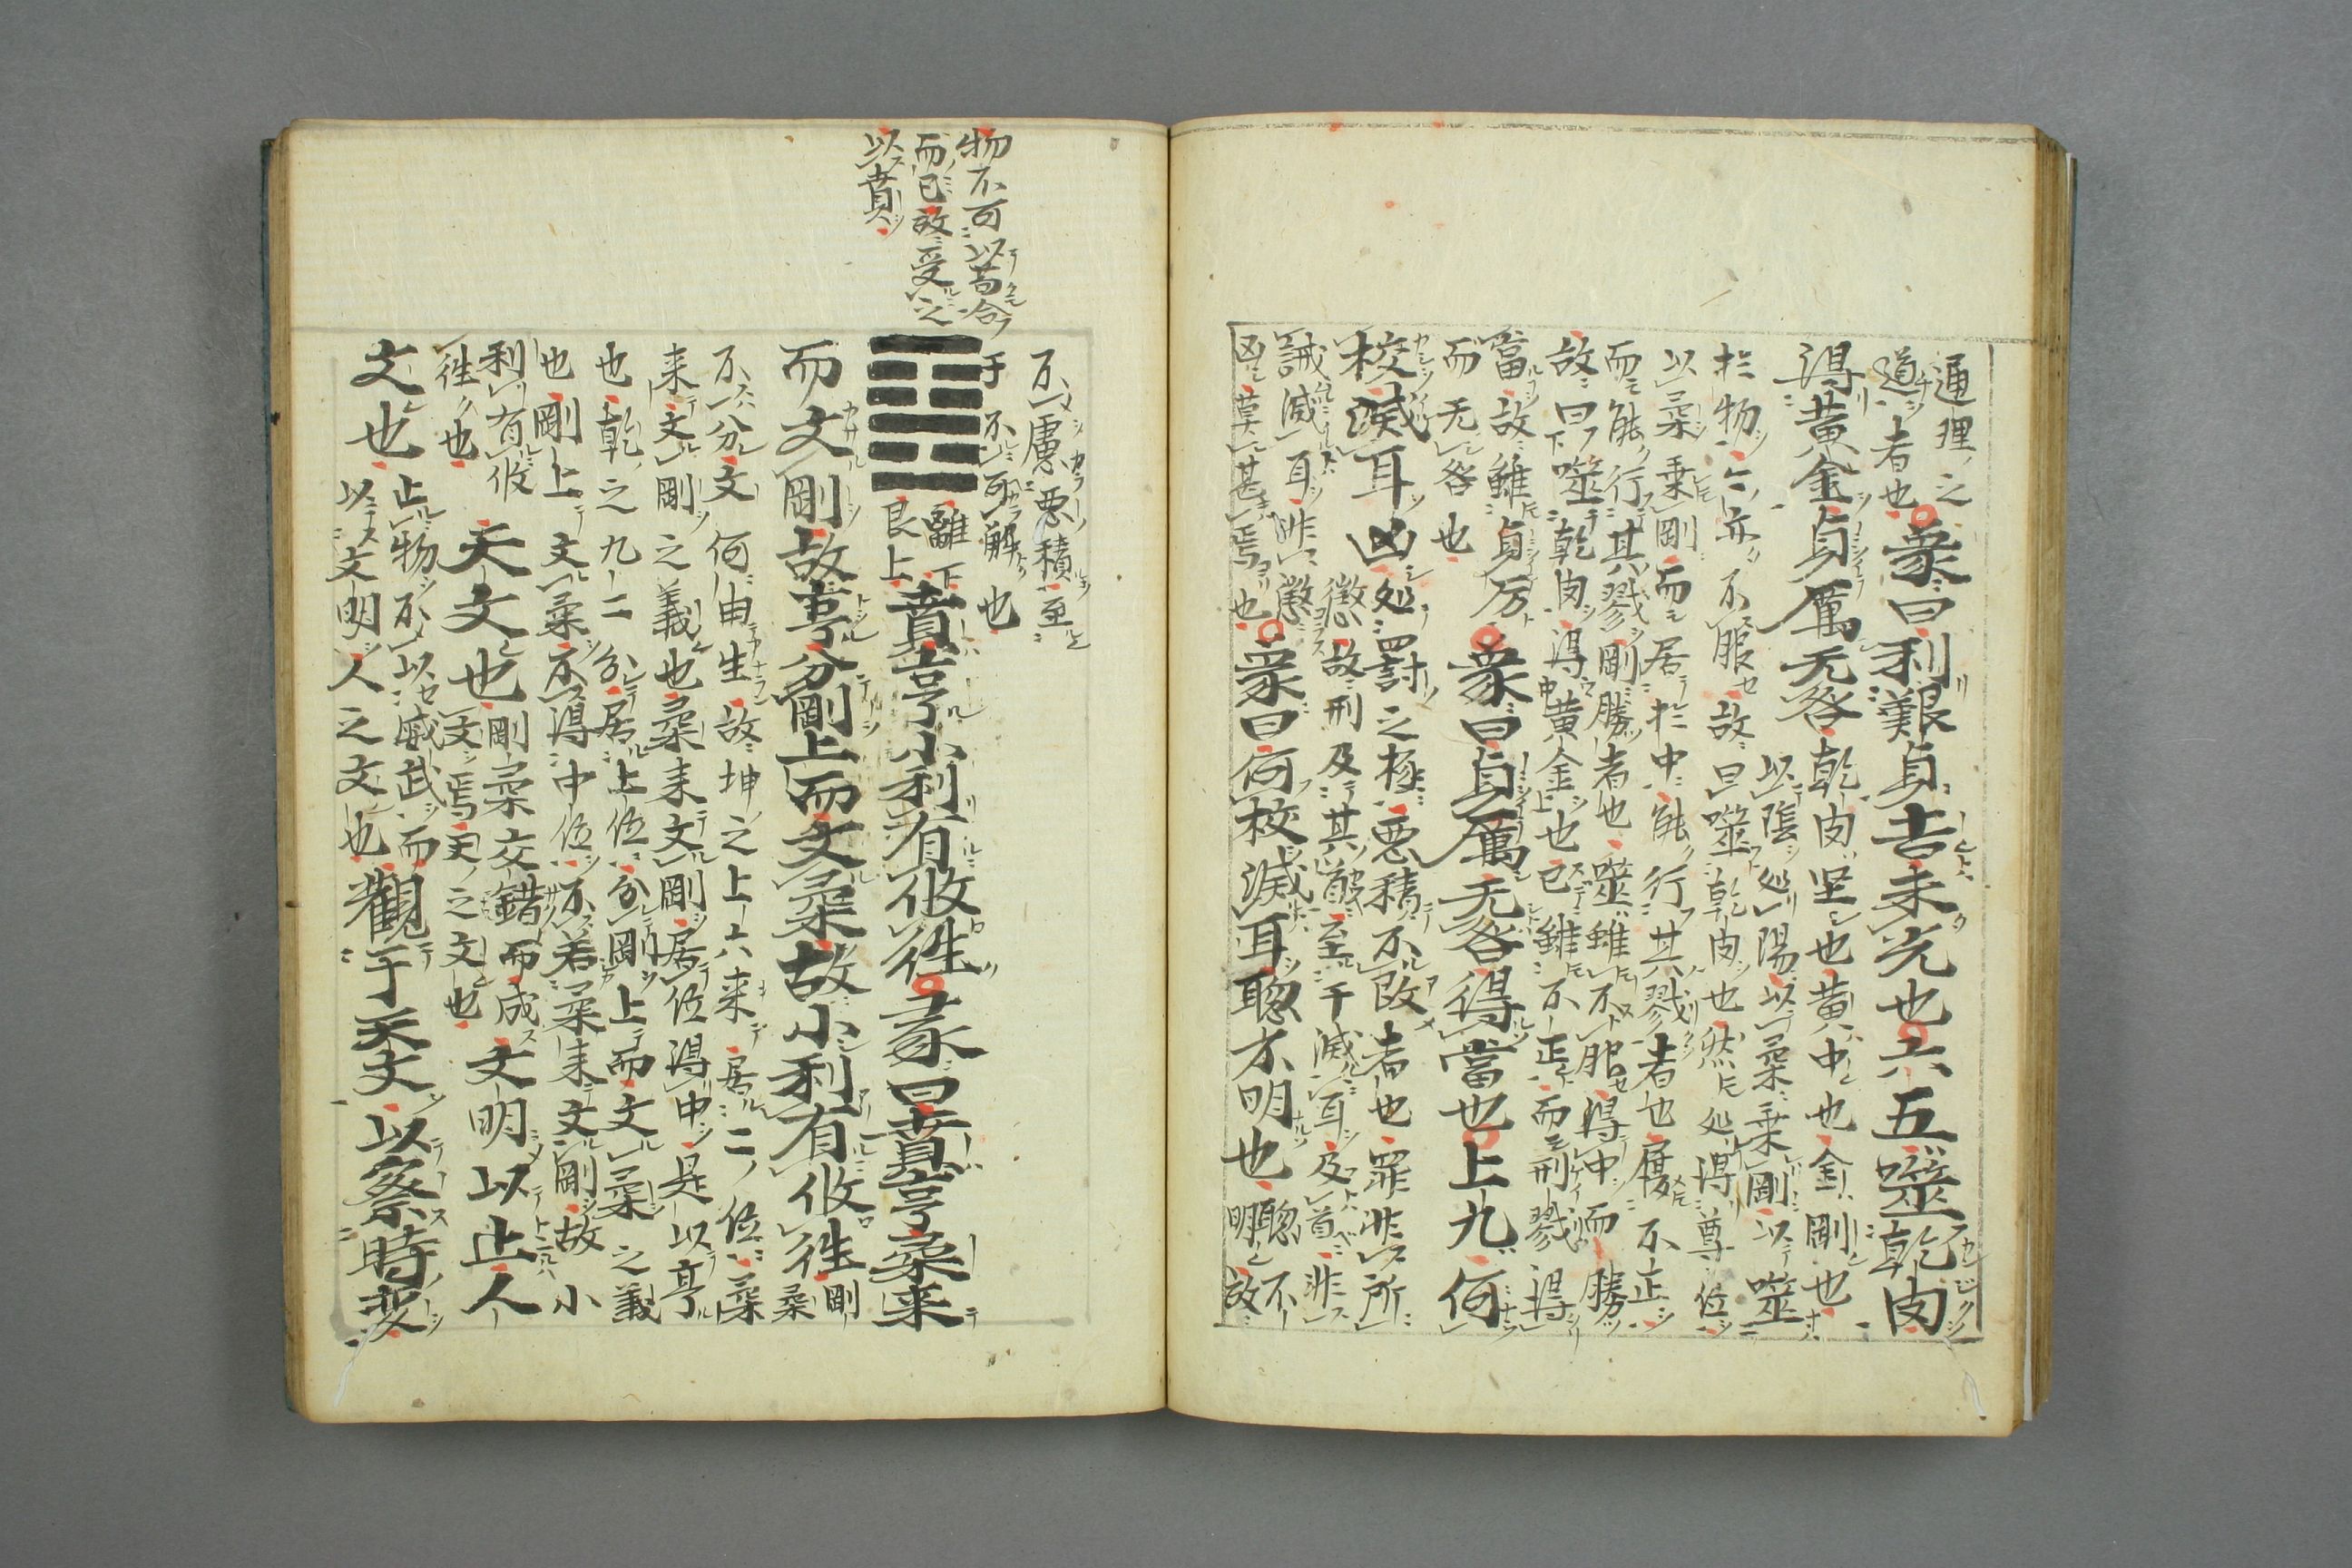 通理之
道者也象曰利艱貞吉未光也六五噬乾肉
得黄金貞厲无咎乾肉坚也黄中也金剛也
以陰処陽以柔乗剛以噬
扵物亦不服故曰噬乾肉也然処得尊位
以柔乗剛而居扵中能行其戮者也履不正
而能行其戮剛勝者也噬雖不服得中而勝
故曰噬乾肉得黄金也已雖不正而刑戮得
當故雖貞厉象曰貞厲无咎得當也上九何
而无咎也
校滅耳凶処罰之極悪積不改者也罪非所
懲故刑及其首至于滅耳及首非
誡滅耳非懲
凶莫甚焉也象曰何校滅耳聡不明也聡不
明故
不慮悪積至
于不可解也
物不可以苟合
而已故受之
以賁
離下
艮上
賁亨小利有攸往彖曰賁亨柔来
而文剛故亨分剛上而文柔故小利有攸往剛
柔
不分文何由生故坤之上六来居二位柔
来文剛之義也柔来文剛居位得中是以亨
也乾之九二分居上位分剛上而文柔之義
也剛上文柔不得中位不若柔来文剛故小
利有攸
往也
天文也剛柔交錯而成
文焉天之文也
文明以止人
文也止物不以威武而
以文明人之文也
觀于天文以察時変